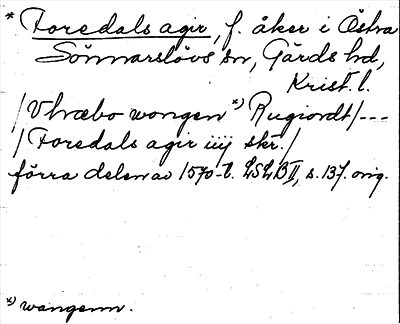 * Foredals agir, f. åker i Östra
Sönnarslövs sn, Gärds hd,
Krist. l.
/Vhræbo wongen *) Rugiordt/---
/Foredals agir iiij skr./
förra delen av 1570-t. LSLB II, s. 137. orig.
*) wangenn.